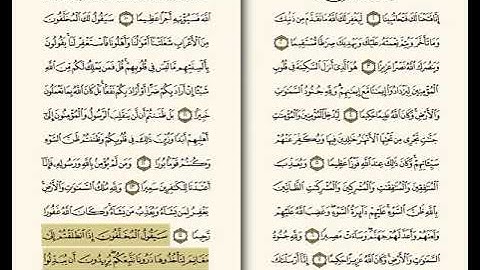 إِنَّا فَتَحْنَا لَكَ فَتْحًا مُّبِينًا ۝١ لِّيَغْفِرَ لَكَ ٱللَّهُ مَا تَقَدَّمَ مِن ذَنۢبِكَ
وَمَا تَأَخَّرَ وَيُتِمَّ نِعْمَتَهُۥ عَلَيْكَ وَيَهْدِيَكَ صِرَٰطًا مُّسْتَقِيمًا ۝٢
وَيَنصُرَكَ ٱللَّهُ نَصْرًا عَزِيزًا ۝٣ هُوَ ٱلَّذِىٓ أَنزَلَ ٱلسَّكِينَةَ فِى قُلُوبِ
ٱلْمُؤْمِنِينَ لِيَزْدَادُوٓا۟ إِيمَٰنًا مَّعَ إِيمَٰنِهِمْ وَلِلَّهِ جُنُودُ ٱلسَّمَٰوَٰتِ
وَٱلْأَرْضِ وَكَانَ ٱللَّهُ عَلِيمًا حَكِيمًا ۝٤ لِّيُدْخِلَ ٱلْمُؤْمِنِينَ وَٱلْمُؤْمِنَٰتِ
جَنَّٰتٍ تَجْرِى مِن تَحْتِهَا ٱلْأَنْهَٰرُ خَٰلِدِينَ فِيهَا وَيُكَفِّرَ عَنْهُمْ
سَيِّـَٔاتِهِمْ وَكَانَ ذَٰلِكَ عِندَ ٱللَّهِ فَوْزًا عَظِيمًا ۝٥ وَيُعَذِّبَ
ٱلْمُنَٰفِقِينَ وَٱلْمُنَٰفِقَٰتِ وَٱلْمُشْرِكِينَ وَٱلْمُشْرِكَٰتِ ٱلظَّآنِّينَ
بِٱللَّهِ ظَنَّ ٱلسَّوْءِ عَلَيْهِمْ دَآئِرَةُ ٱلسَّوْءِ وَغَضِبَ ٱللَّهُ عَلَيْهِمْ
وَلَعَنَهُمْ وَأَعَدَّ لَهُمْ جَهَنَّمَ وَسَآءَتْ مَصِيرًا ۝٦ وَلِلَّهِ جُنُودُ ٱلسَّمَٰوَٰتِ
وَٱلْأَرْضِ وَكَانَ ٱللَّهُ عَزِيزًا حَكِيمًا ۝٧
ٱللَّهَ فَسَيُؤْتِيهِ أَجْرًا عَظِيمًا ۝١٠ سَيَقُولُ لَكَ ٱلْمُخَلَّفُونَ
مِنَ ٱلْأَعْرَابِ شَغَلَتْنَآ أَمْوَٰلُنَا وَأَهْلُونَا فَٱسْتَغْفِرْ لَنَا يَقُولُونَ
بِأَلْسِنَتِهِم مَّا لَيْسَ فِى قُلُوبِهِمْ قُلْ فَمَن يَمْلِكُ لَكُم مِّنَ ٱللَّهِ
شَيْـًٔا إِنْ أَرَادَ بِكُمْ ضَرًّا أَوْ أَرَادَ بِكُمْ نَفْعًۢا بَلْ كَانَ ٱللَّهُ بِمَا تَعْمَلُونَ
خَبِيرًۢا ۝١١ بَلْ ظَنَنتُمْ أَن لَّن يَنقَلِبَ ٱلرَّسُولُ وَٱلْمُؤْمِنُونَ إِلَىٰٓ
أَهْلِيهِمْ أَبَدًا وَزُيِّنَ ذَٰلِكَ فِى قُلُوبِكُمْ وَظَنَنتُمْ ظَنَّ ٱلسَّوْءِ
وَكُنتُمْ قَوْمًۢا بُورًا ۝١٢ وَمَن لَّمْ يُؤْمِنۢ بِٱللَّهِ وَرَسُولِهِۦ فَإِنَّآ
أَعْتَدْنَا لِلْكَٰفِرِينَ سَعِيرًا ۝١٣ وَلِلَّهِ مُلْكُ ٱلسَّمَٰوَٰتِ وَٱلْأَرْضِ
يَغْفِرُ لِمَن يَشَآءُ وَيُعَذِّبُ مَن يَشَآءُ وَكَانَ ٱللَّهُ غَفُورًا
رَّحِيمًا ۝١٤ سَيَقُولُ ٱلْمُخَلَّفُونَ إِذَا ٱنطَلَقْتُمْ إِلَىٰ
مَغَانِمَ لِتَأْخُذُوهَا ذَرُونَا نَتَّبِعْكُمْ يُرِيدُونَ أَن يُبَدِّلُوا۟